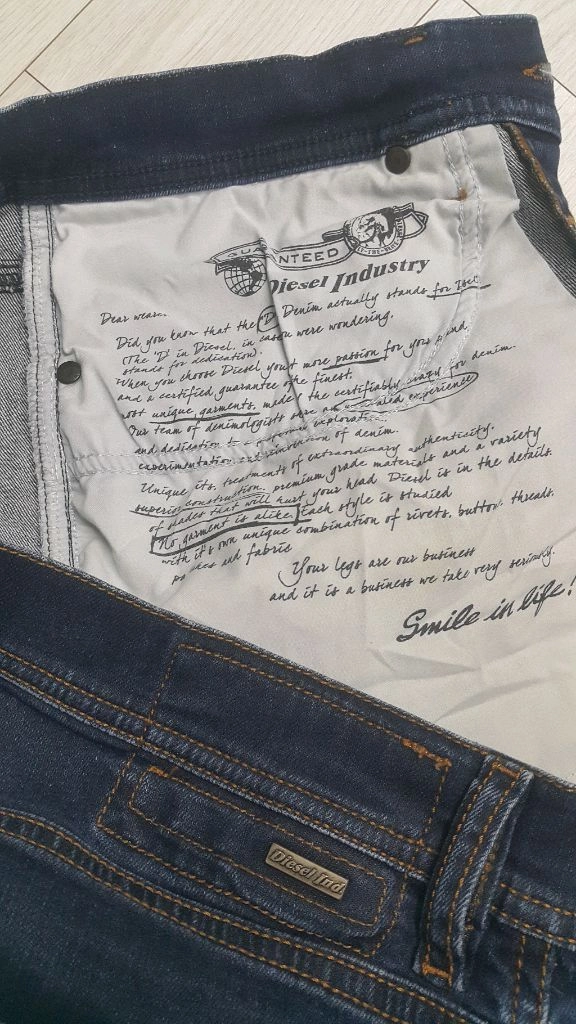 GUARANTEED
Diesel Industry
Dear wearer,
Did you know that the "D" Denim actually stands for Diesel
(The 'D' in Diesel, in case you were wondering,
stands for dedication).
When you choose Diesel you get more passion for your
and a certified guarantee of the finest,
most unique garments, made the certifiably crazy for denim.
Our team of denimologists experience
and dedication to
experimentation and invention of denim.
Unique its, treatments of extraordinary authenticity,
superior construction, premium grade materials and a variety
of shades that will hurt your head. Diesel is in the details.
No garment is alike. Each style is studied
with it's own unique combination of rivets, button, threads,
and fabric
Your legs are our business
and it is a business we take very seriously.
Smile in life!
Diesel Ind.